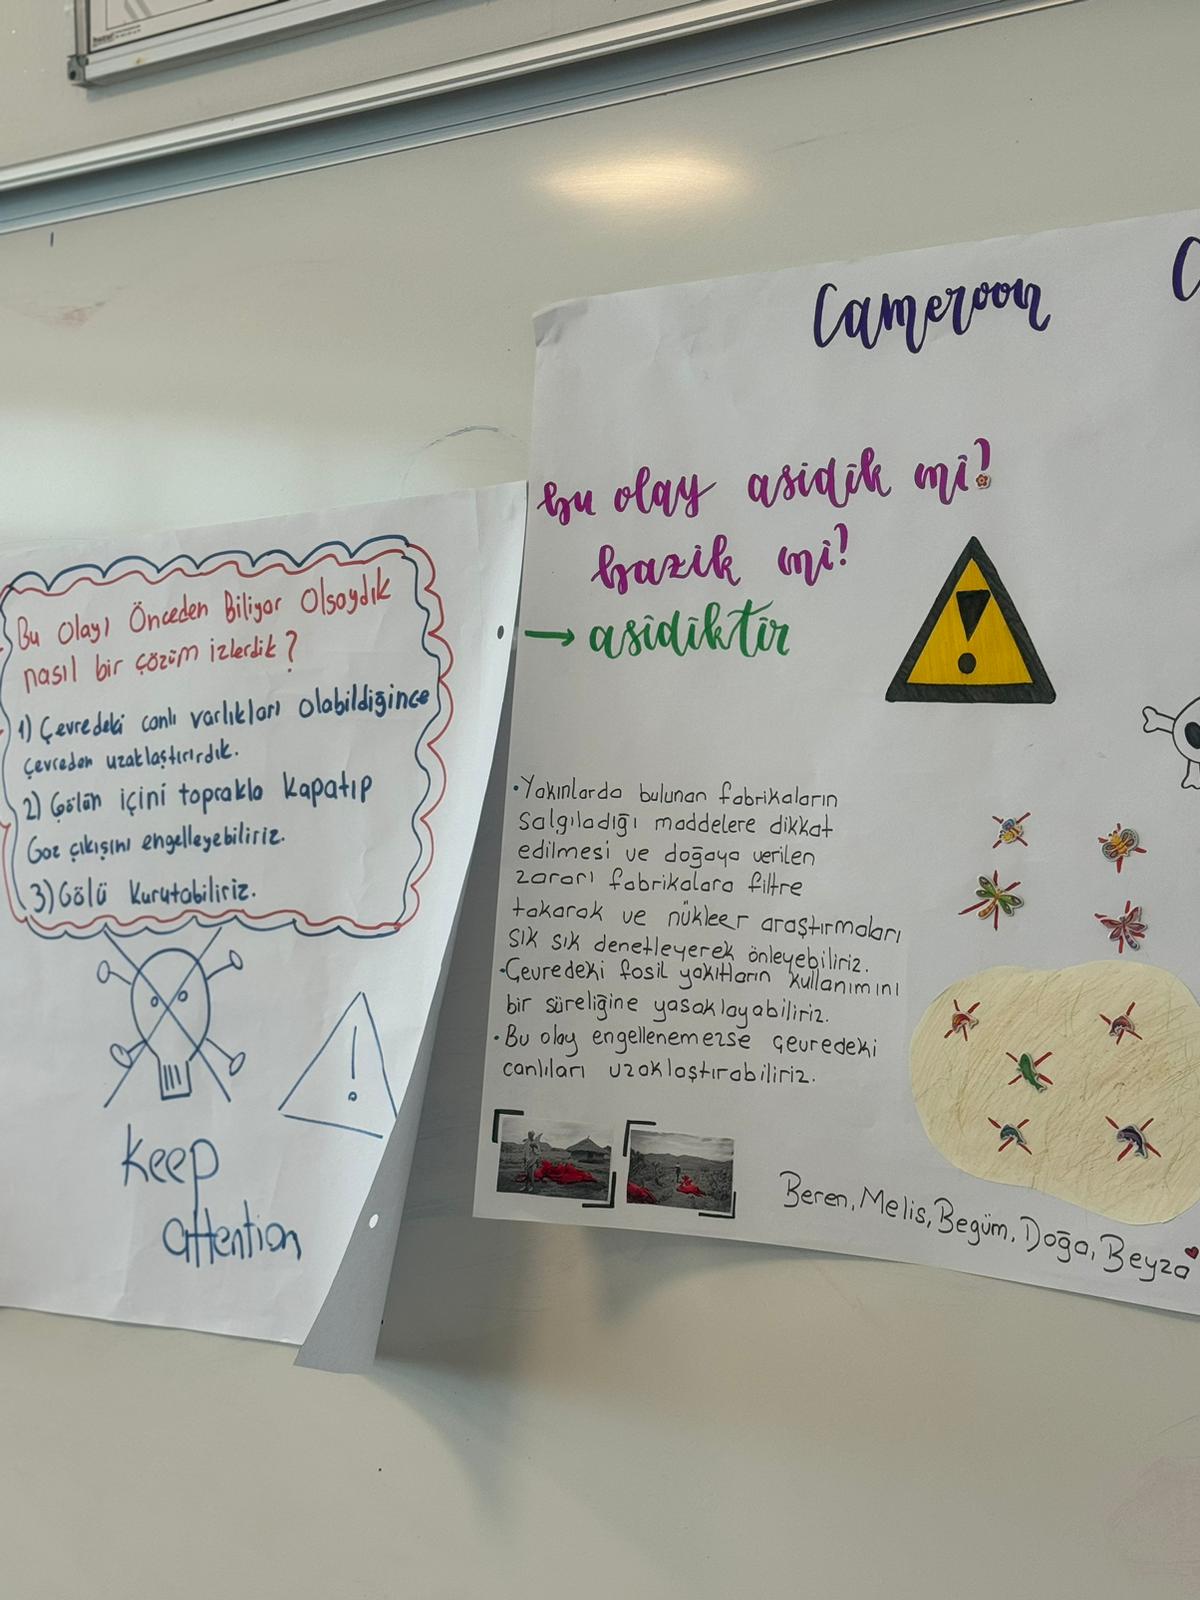 Bu Olayı Önceden Biliyor Olsaydık
nasıl bir çözüm izlerdik?
1) Çevredeki canlı varlıkları olabildiğince
çevreden uzaklaştırırdık.
2) Gölün içini toprakla kapatıp
Gaz çıkışını engelleyebiliriz.
3) Gölü kurutabiliriz.
keep
attention
Cameroon
bu olay asidik mi?
bazik mi?
→ asidiktir
• Yakınlarda bulunan fabrikaların
salgıladığı maddelere dikkat
edilmesi ve doğaya verilen
zararı fabrikalara filtre
takarak ve nükleer araştırmaları
sık sık denetleyerek önleyebiliriz.
• Çevredeki fosil yakıtların kullanımını
bir süreliğine yasaklayabiliriz.
• Bu olay engellenemezse çevredeki
canlıları uzaklaştırabiliriz.
Beren, Melis, Begüm, Doğa, Beyza